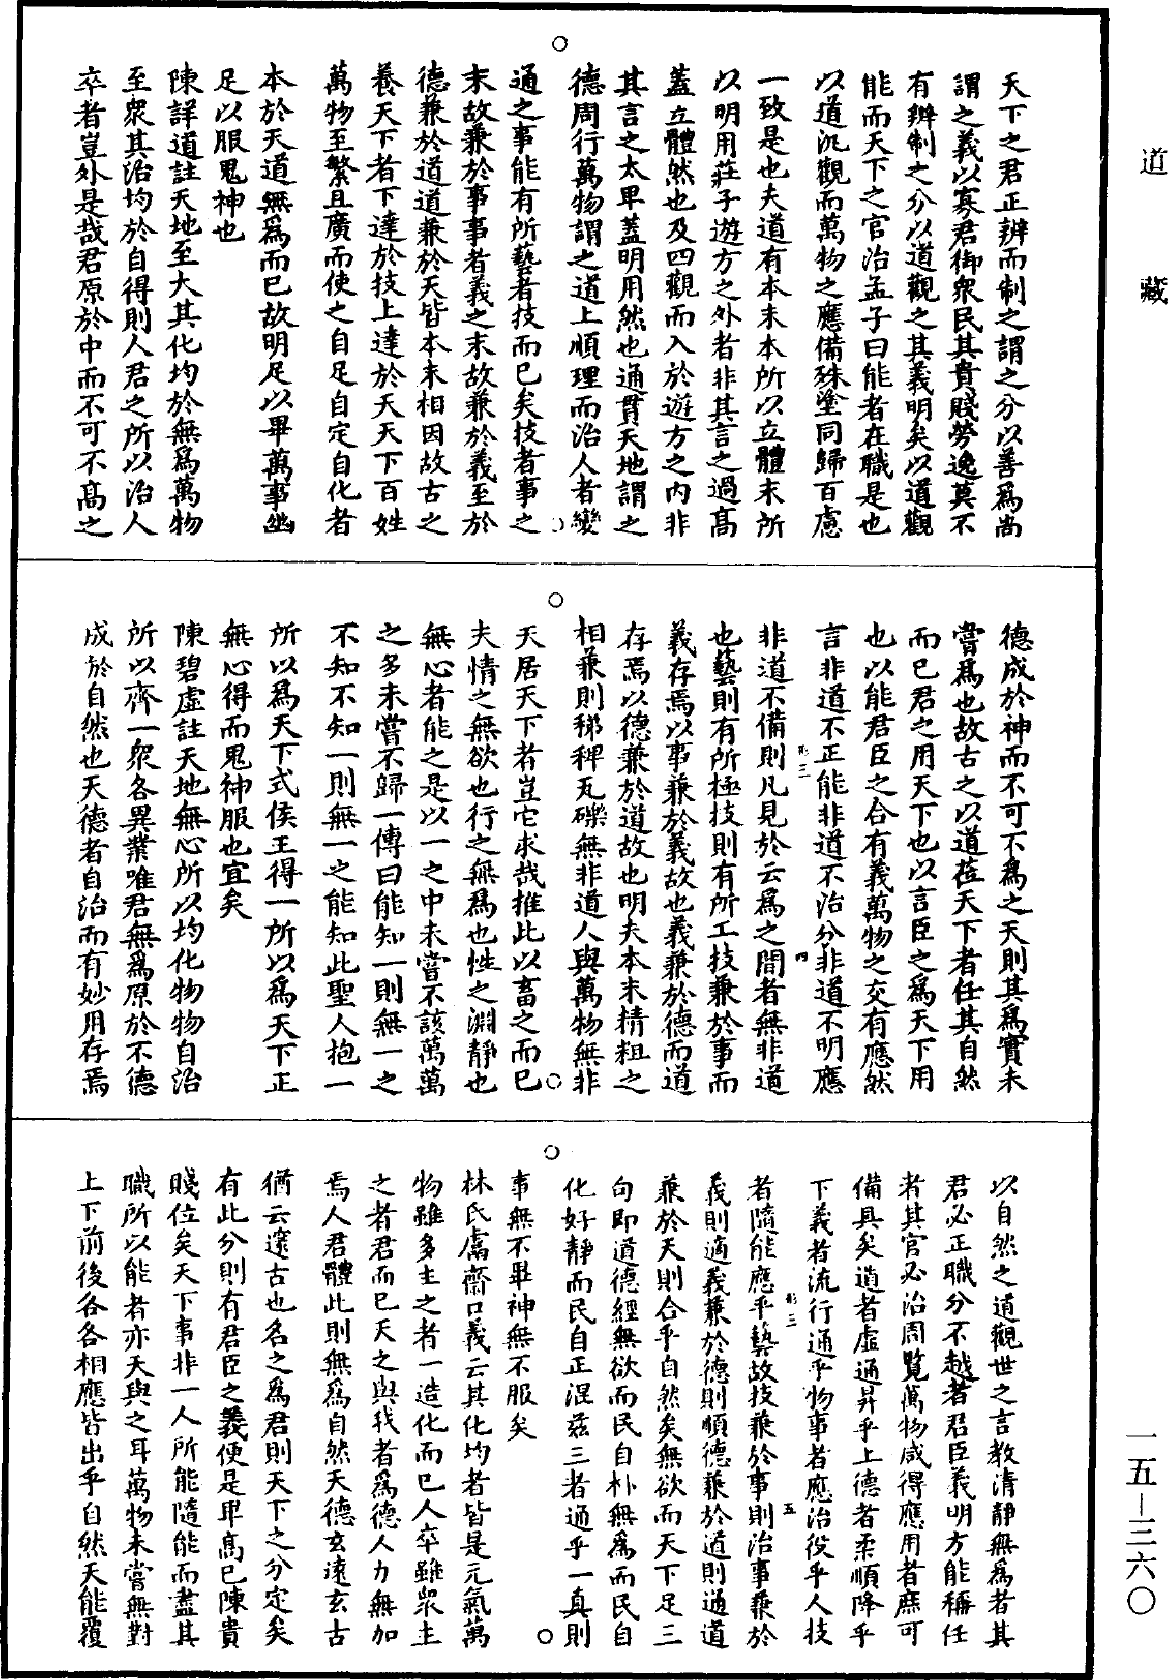 道藏
天下之君正辨而制之謂之分以善為尚
謂之義以寡君御眾民其貴賤勞逸莫不
有辨制之分以道觀之其義明矣以道觀
能而天下之官治孟子曰能者在職是也
以道汎觀而萬物之應備殊塗同歸百慮
一致是也夫道有本末本所以立體末所
以明用莊子遊方之外者非其言之過高
蓋立體然也及四觀而入於遊方之內非
其言之太卑蓋明用然也通貫天地謂之
德周行萬物謂之道上順理而治人者變
通之事能有所藝者技而已矣技者事之
末故兼於事事者義之末故兼於義至於
德兼於道道兼於天皆本末相因故古之
養天下者下達於技上達於天天下百姓
萬物至繁且廣而使之自足自定自化者
本於天道無為而已故明足以畢萬事幽
足以服鬼神也
陳詳道註天地至大其化均於無為萬物
至眾其治均於自得則人君之所以治人
卒者豈外是哉君原於中而不可不高之
德成於神而不可不為之天則其為實未
嘗為也故古之以道莅天下者任其自然
而已君之用天下也以言臣之為天下用
也以能君臣之合有義萬物之交有應然
言非道不正能非道不治分非道不明應
非道不備則凡見於云為之間者無非道
也藝則有所極技則有所工技兼於事而
義存焉以事兼於義故也義兼於德而道
存焉以德兼於道故也明夫本末精粗之
相兼則稊稗瓦礫無非道人與萬物無非
天居天下者豈它求哉推此以畜之而已
夫情之無欲也行之無為也性之淵靜也
無心者能之是以一之中未嘗不該萬萬
之多未嘗不歸一傳曰能知一則無一之
不知不知一則無一之能知此聖人抱一
所以為天下式侯王得一所以為天下正
無心得而鬼神服也宜矣
陳碧虛註天地無心所以均化物物自治
所以齊一眾各異業唯君無為原於不德
成於自然也天德者自治而有妙用存焉
以自然之道觀世之言教清靜無為者其
君必正職分不越者君臣義明方能稱任
者其官必治周覽萬物咸得應用者庶可
備具矣道者虛通昇乎上德者柔順降乎
下義者流行通乎物事者應治役乎人技
者隨能應乎藝故技兼於事則治事兼於
義則適義兼於德則順德兼於道則通道
兼於天則合乎自然矣無欲而天下足三
句即道德經無欲而民自朴無為而民自
化好靜而民自正混茲三者通乎一真則
事無不畢神無不服矣
林氏鬳齋口義云其化均者皆是元氣萬
物雖多主之者一造化而已人卒雖眾主
之者君而已天之與我者為德人力無加
焉人君體此則無為自然天德玄遠玄古
猶云邃古也名之為君則天下之分定矣
有此分則有君臣之義便是卑高已陳貴
賤位矣天下事非一人所能隨能而盡其
職所以能者亦天與之耳萬物未嘗無對
上下前後各各相應皆出乎自然天能覆
形三
四
形三
五
一五－三六〇